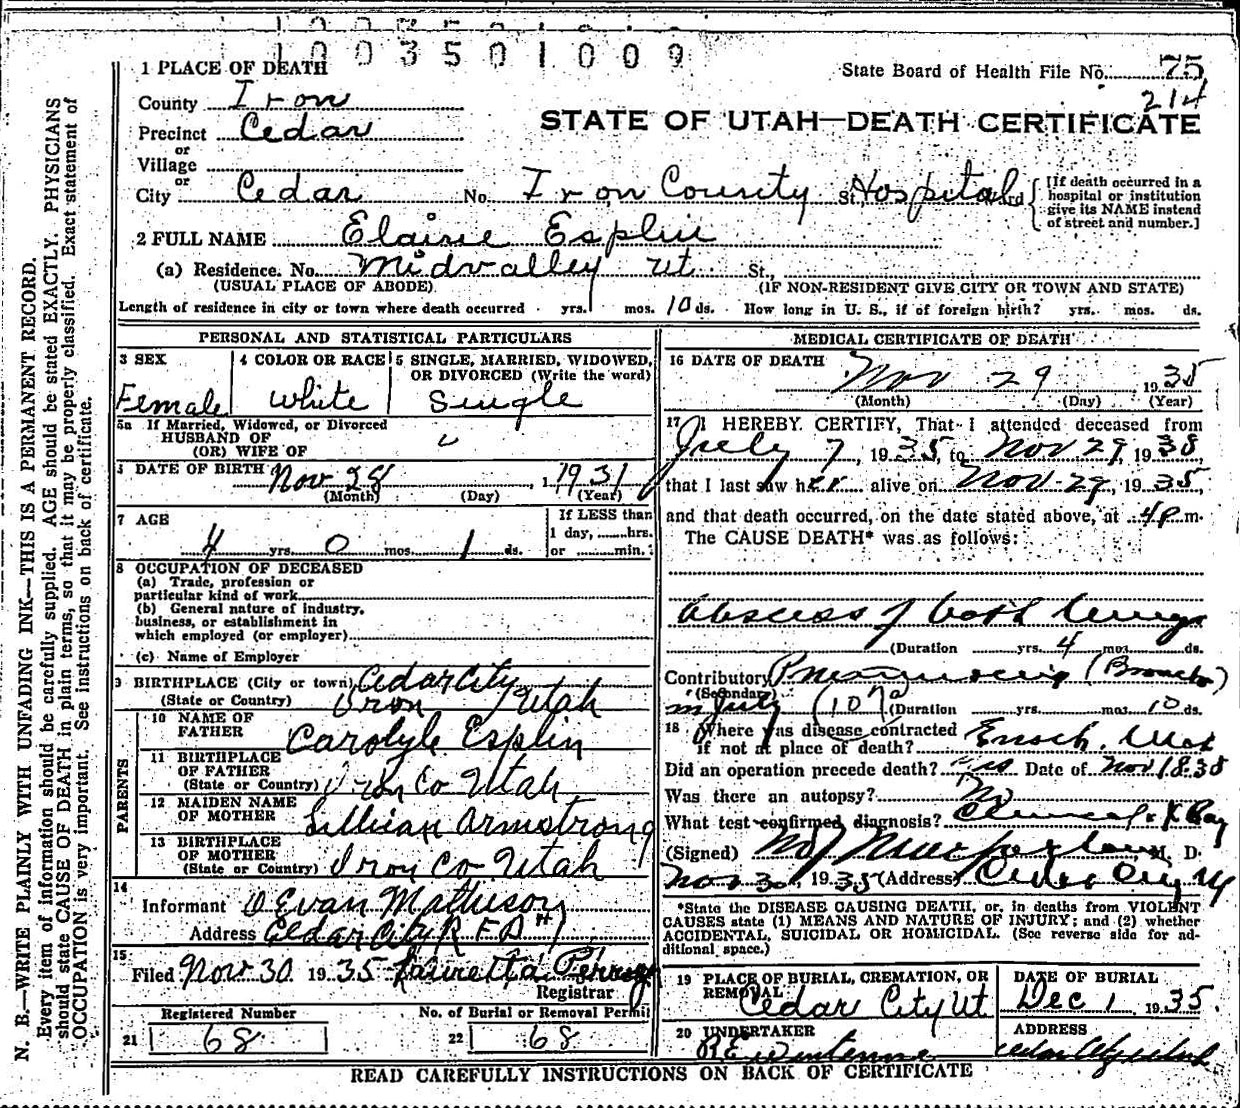 1003501009
1 PLACE OF DEATH
State Board of Health File No. 75
214
County Iron
STATE OF UTAH—DEATH CERTIFICATE
Precinct Cedar
or
Village
or
City Cedar No. Iron County St. Hospital
[If death occurred in a
hospital or institution
give its NAME instead
of street and number.]
2 FULL NAME Elaine Esplin
(a) Residence. No. Midvalley Ut. St.,
(USUAL PLACE OF ABODE) (IF NON-RESIDENT GIVE CITY OR TOWN AND STATE)
Length of residence in city or town where death occurred yrs. mos. 10 ds. How long in U. S., if of foreign birth? yrs. mos. ds.
PERSONAL AND STATISTICAL PARTICULARS
3 SEX
Female
4 COLOR OR RACE
White
5 SINGLE, MARRIED, WIDOWED,
OR DIVORCED (Write the word)
Single
5a If Married, Widowed, or Divorced
HUSBAND OF
(OR) WIFE OF
DATE OF BIRTH Nov 28, 1931
(Month) (Day) (Year)
7 AGE
4 yrs. 0 mos. 1 ds.
If LESS than
1 day, hrs.
or min.
8 OCCUPATION OF DECEASED
(a) Trade, profession or
particular kind of work
(b) General nature of industry,
business, or establishment in
which employed (or employer)
(c) Name of Employer
9 BIRTHPLACE (City or town) Cedar City
(State or Country) Iron Utah
PARENTS
10 NAME OF
FATHER Carolyle Esplin
11 BIRTHPLACE
OF FATHER
(State or Country) Iron Co Utah
12 MAIDEN NAME
OF MOTHER Lillian Armstrong
13 BIRTHPLACE
OF MOTHER
(State or Country) Iron Co Utah
14
Informant D Evan Matheson
Address Cedar City R F D #1
15
Filed Nov 30 1935 Lauretta Perry
Registrar
Registered Number No. of Burial or Removal Permit
21 68 22 68
MEDICAL CERTIFICATE OF DEATH
16 DATE OF DEATH
Nov 29, 1935
(Month) (Day) (Year)
17 I HEREBY CERTIFY, That I attended deceased from
July 7, 1935, to Nov 29, 1935,
that I last saw her alive on Nov 29, 1935,
and that death occurred, on the date stated above, at 4 p m.
The CAUSE DEATH* was as follows:
Abscess of both lungs
(Duration yrs. 4 mos. ds.
Contributory Pneumonia (Broncho)
(Secondary)
in July (Duration yrs. mos. 10 ds.
18 Where was disease contracted
if not at place of death? Enoch, Utah
Did an operation precede death? Yes Date of Nov 18.35
Was there an autopsy? No
What test confirmed diagnosis? Clinical & X Ray
(Signed) Macfarlane, M. D.
Nov 30, 1935 (Address) Cedar City Ut
*State the DISEASE CAUSING DEATH, or, in deaths from VIOLENT
CAUSES state (1) MEANS AND NATURE OF INJURY; and (2) whether
ACCIDENTAL, SUICIDAL OR HOMICIDAL. (See reverse side for ad-
ditional space.)
19 PLACE OF BURIAL, CREMATION, OR
REMOVAL
Cedar City Ut
DATE OF BURIAL
Dec 1, 1935.
20 UNDERTAKER
ADDRESS
Cedar City Utah
READ CAREFULLY INSTRUCTIONS ON BACK OF CERTIFICATE
N. B.—WRITE PLAINLY WITH UNFADING INK—THIS IS A PERMANENT RECORD.
Every item of information should be carefully supplied. AGE should be stated EXACTLY. PHYSICIANS
should state CAUSE OF DEATH in plain terms, so that it may be properly classified. Exact statement of
OCCUPATION is very important. See instructions on back of certificate.